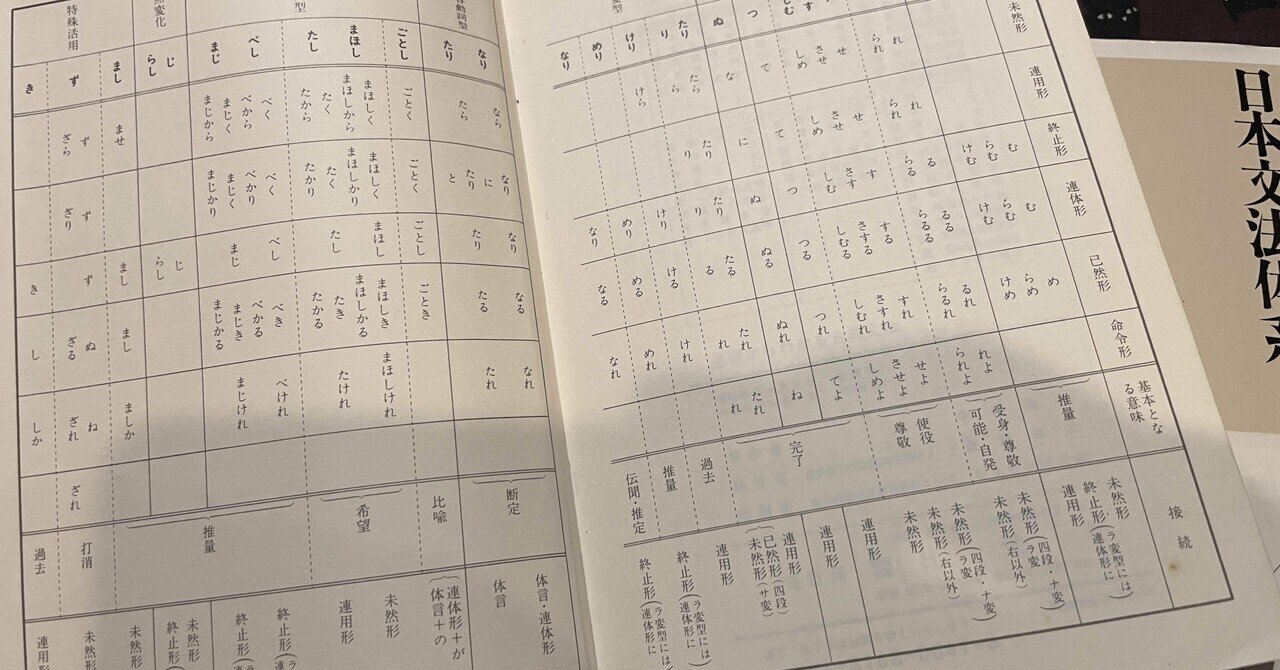 未然形
連用形
終止形
連体形
已然形
命令形
基本となる意味
接続
む
む
め
未然形
らむ
らむ
らめ
終止形(ラ変型には連体形に)
けむ
けむ
けめ
連用形
推量
れ
れ
る
るる
るれ
れよ
未然形(四段・ナ変・ラ変)
られ
られ
らる
らるる
らるれ
られよ
未然形(右以外)
受身・尊敬
可能・自発
せ
せ
す
する
すれ
せよ
未然形(四段・ナ変・ラ変)
させ
させ
さす
さする
さすれ
させよ
未然形(右以外)
しむ
しめ
しめ
しむ
しむる
しむれ
しめよ
未然形
使役
尊敬
つ
て
て
つ
つる
つれ
てよ
連用形
ぬ
な
に
ぬ
ぬる
ぬれ
ね
連用形
たり
たら
たり
たり
たる
たれ
たれ
連用形
り
ら
り
り
る
れ
れ
已然形(四段)
未然形(サ変)
完了
けり
けら
けり
ける
けれ
過去
連用形
めり
めり
める
めれ
推量
終止形(ラ変型には連体形に)
なり
なり
なる
なれ
伝聞・推定
終止形(ラ変型には連体形に)
なり
なら
なり
に
なり
なる
なれ
体言・連体形
たり
たら
たり
と
たり
たる
たれ
体言
断定
ごとし
ごとく
ごとく
ごとし
ごとき
比喩
連体形+が
体言+の
まほし
まほしく
まほしから
まほしく
まほしかり
まほし
まほしき
まほしかる
まほしけれ
未然形
たし
たく
たから
たく
たかり
たし
たき
たかる
たけれ
連用形
希望
型
べし
べく
べから
べく
べかり
べし
べき
べかる
べけれ
終止形
まじ
まじく
まじから
まじく
まじかり
まじ
まじき
まじかる
まじけれ
終止形
じ
じ
じ
未然形
らし
らし
らし
終止形
まし
ませ
まし
まし
ましか
未然形
推量
特殊活用
ず
ず
ざら
ず
ざり
ず
ぬ
ざる
ね
ざれ
ざれ
打消
未然形
き
き
し
しか
過去
連用形
日本文法体系